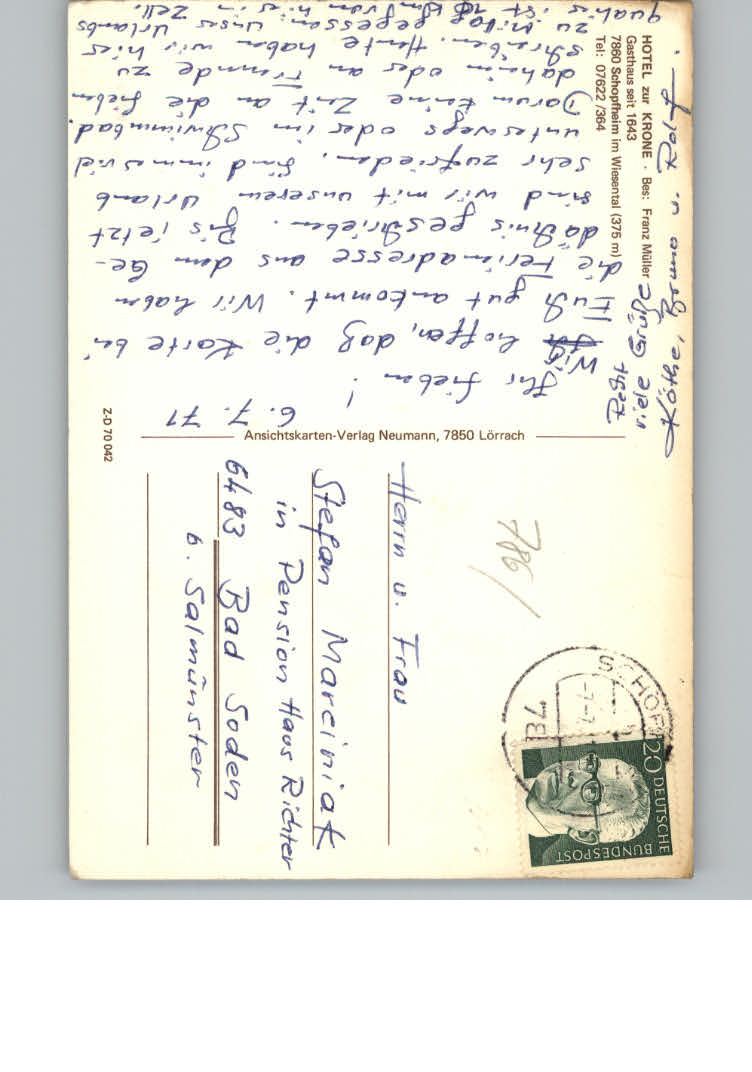 HOTEL zur KRONE · Bes: Franz Müller
Gasthaus seit 1643
7860 Schopfheim im Wiesental (375 m)
Tel: 07622/364
6.7.71
Ihr Lieben!
Wir hoffen, daß die Karte bei
Euch gut ankommt. Wir haben
die Ferienadresse aus dem Ge-
dächtnis geschrieben. Bis jetzt
sind wir mit unserem Urlaub
sehr zufrieden. Sind immer viel
unterwegs oder im Schwimmbad.
Darum keine Zeit an die Lieben
daheim oder an Freunde zu
schreiben. Heute haben wir hier
zu Mittag gegessen; unser Urlaubs
quartier ist von hier in Zell.
viele Grüße
Ansichtskarten-Verlag Neumann, 7850 Lörrach
Z-D 70 042
Herrn u. Frau
Stefan Marciniak
in Pension Haus Richter
6483 Bad Soden
b. Salmünster
786
SCHOPF
20 DEUTSCHE
BUNDESPOST